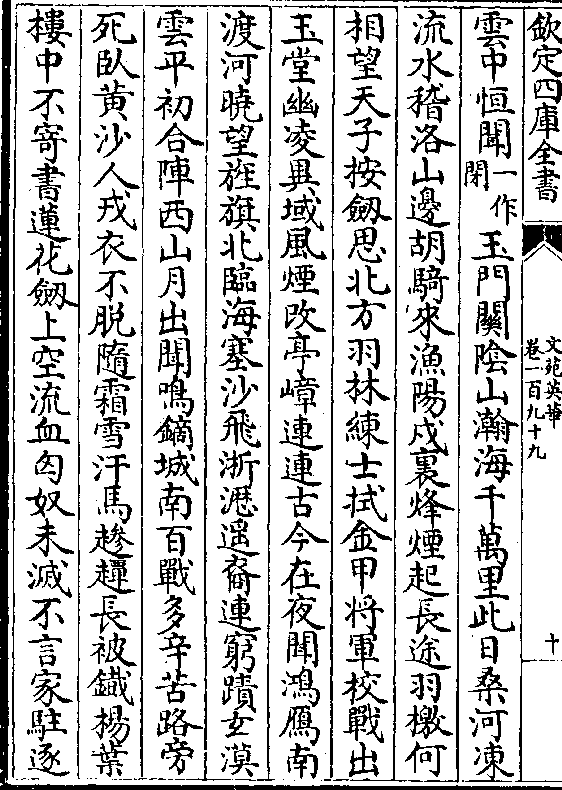 欽定四庫全書
文苑英華
卷一百九十九
十
雲中恒聞一作閉玉門關陰山瀚海千萬里此日桑河凍
流水稽洛山邊胡騎來漁陽戍裏烽煙起長途羽檄何
相望天子按劒思北方羽林練士拭金甲将軍校戰出
玉堂幽凌異域風煙改亭嶂連連古今在夜聞鴻鴈南
渡河曉望旌旗北臨海塞沙飛淅瀝遥裔連窮蹟玄漠
雲平初合陣西山月出聞鳴鏑城南百戰多辛苦路旁
死臥黄沙人戎衣不脱隨霜雪汗馬趁趯長被鐵楊葉
樓中不寄書蓮花劒上空流血匈奴未滅不言家駐逐